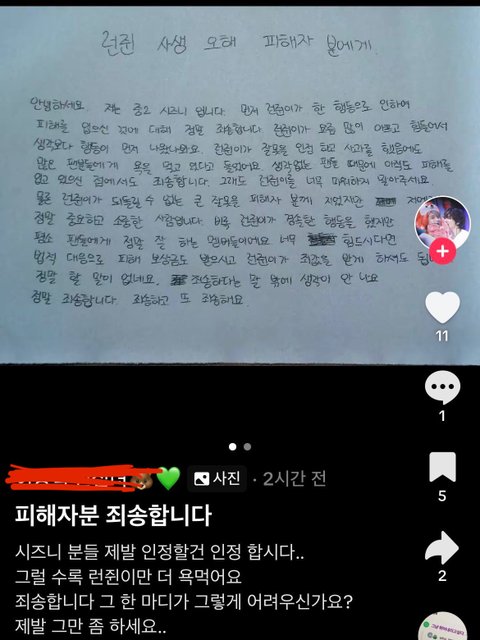 런쥔 사생 오해 피해자 분에게.
안녕하세요. 저는 중2 시즈니 입니다. 먼저 런쥔이가 한 행동으로 인하여
피해를 입으신 것에 대해 정말 죄송합니다. 런쥔이가 요즘 많이 아프고 힘들어서
생각보다 행동이 먼저 나왔나와요. 런쥔이가 잘못을 인정 하고 사과를 했음에도
많은 팬분들에게 욕을 먹고 있다고 들었어요. 생각없는 팬들 때문에 아직도 피해를
입고 있으신 점에서도 죄송합니다. 그래도 런쥔이를 너무 미워하지 말아주세요.
물론 런쥔이가 되돌릴 수 없는 큰 잘못을 피해자 분께 지었지만 저에겐
정말 중요하고 소중한 사람입니다. 비록 런쥔이가 경솔한 행동을 했지만
평소 팬들에게 정말 잘 하는 멤버들이에요. 너무 힘드시다면
법적 대응으로 피해 보상금도 받으시고 런쥔이가 죗값을 받게 하셔도 됩니
정말 할 말이 없네요. 죄송하다는 말 밖에 생각이 안 나요
정말 죄송합니다. 죄송하고 또 죄송해요.
11
1
5
2
사진 · 2시간 전
피해자분 죄송합니다
시즈니 분들 제발 인정할건 인정 합시다..
그럴 수록 런쥔이만 더 욕먹어요
죄송합니다 그 한 마디가 그렇게 어려우신가요?
제발 그만 좀 하세요..